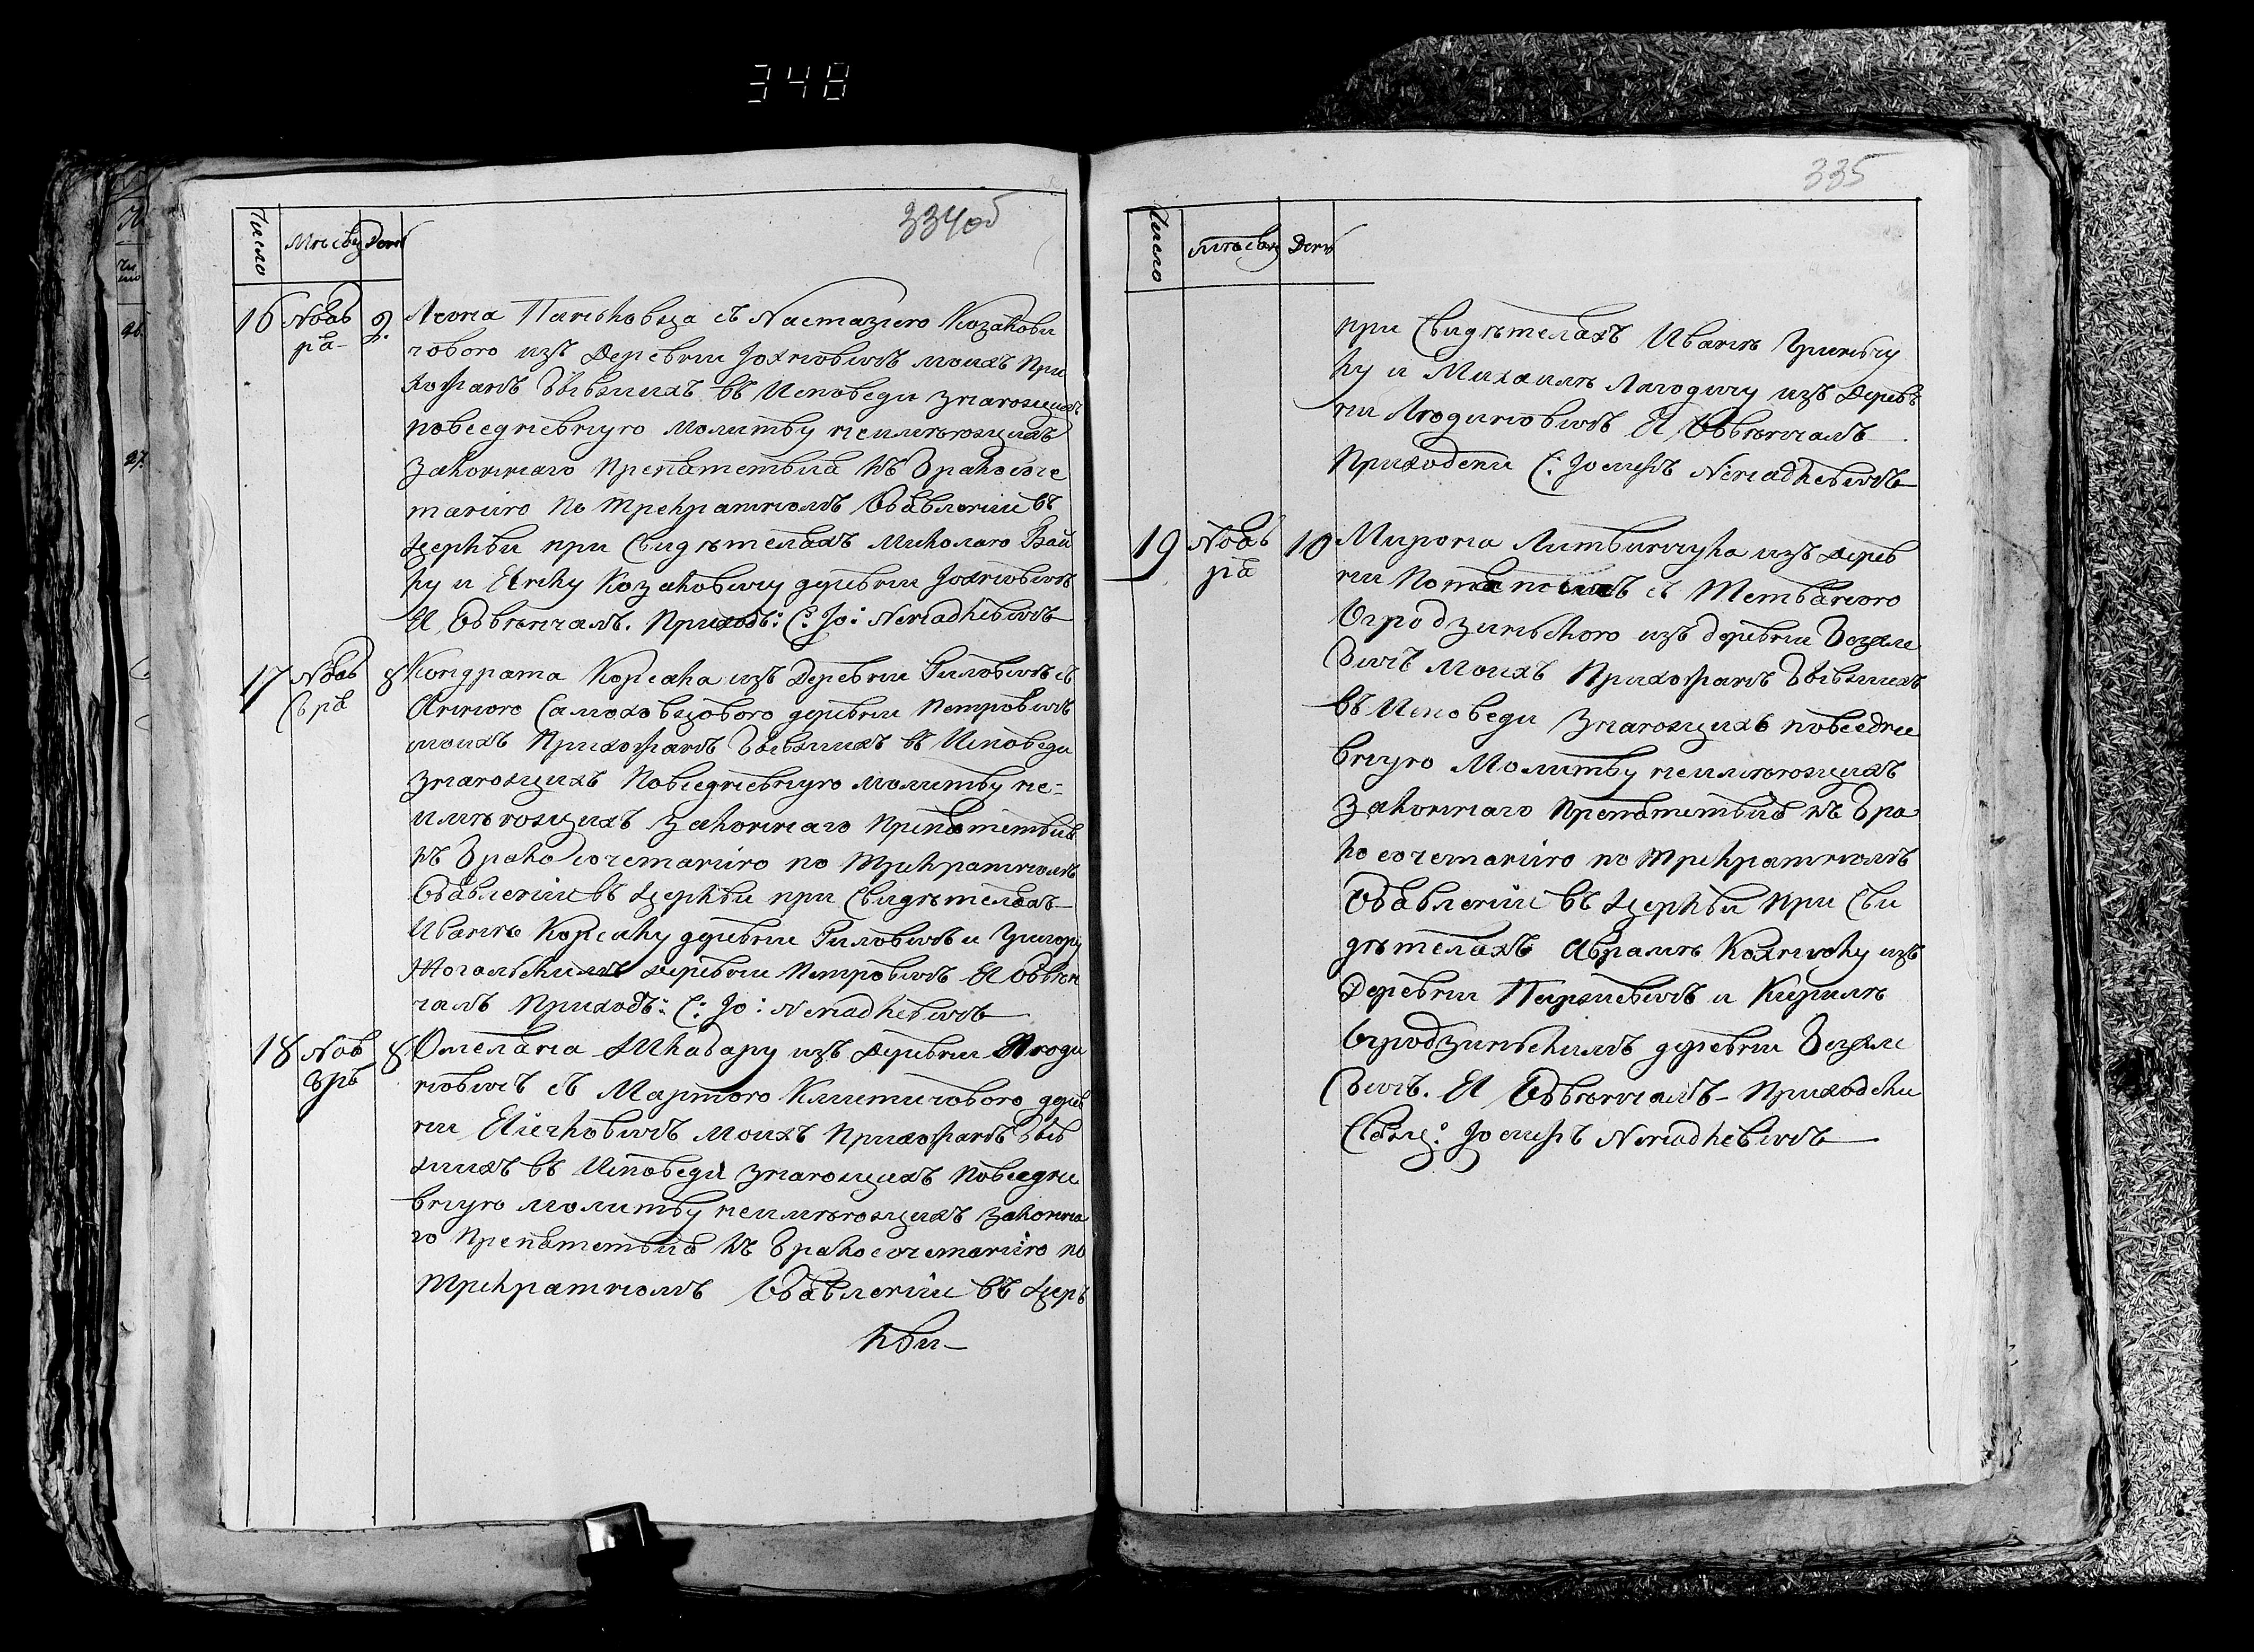 348
334об
Число Мѣсяц День
16 Ноаб 9. Леона Паньковца съ Настазіею Козакови
ра човою изъ деревни Іохновичъ моихъ При
хожанъ бывшихъ въ Исповеди знающихъ
повседневную молитву неимѣющихъ
законнаго препятствія къ бракосоче
танію по трекратномъ объявленіи въ
церкви при свидѣтеляхъ Миколаю Вай
ку и Янку Козаковичу деревни Іохновичъ
Я Обвѣнчалъ. Приход: С: Іо: Ненадкевичъ
17 Ноаб 8 Кондрата Корсака изъ деревни Гиловичъ съ
бра Анною Самоховцовою деревни Петровичъ
моихъ Прихожанъ бывшихъ въ Исповеди
знающихъ Повседневную молитву не-
имѣющихъ законнаго препятствія
къ бракосочетанію по трекратномъ
объявленіи въ церкви при свидѣтеляхъ
Иванѣ Корсаку деревни Гиловичъ и Григору
деревни Петровичъ Я Обвѣн
чалъ Приход: С: Іо: Ненадкевичъ
18 Ноав 8 Омеляна Шкабару изъ деревни Люди
брь новичъ съ Мартою Климчиовою дерев
ни моихъ прихожанъ быв
шихъ въ Исповеди знающихъ Повседне
вную молитву неимѣющихъ законна
го препятствія къ бракосочетанію по
трекратномъ объявленіи въ Церъ
кви
335
Число Мѣсяц День
при Свидѣтеляхъ Иванѣ Гриневчу
ку и Михаилѣ Лагодичу изъ деревъ
ни Людиновичъ Я Обвѣнчалъ
Приходски С: Іосифъ Ненадкевичъ
19 Ноаб 10 Мирона Литвинчука изъ дерев
ра ни Потаповичъ съ Тетьяною
Огродзинскою изъ деревни Везже
вичъ моихъ Прихожанъ бывшихъ
въ Исповеди знающихъ повседне
вную Молитву неимѣющихъ
законнаго препятствія къ бра
косочетанію по трекратномъ
объявленіи въ церкви при сви
дѣтеляхъ Абрамѣ Кохнюку изъ
деревни Паршевичъ и Кирилѣ
Огродзинскимъ деревни Везже
вичъ. Я Обвѣнчалъ - Приходски
Свящ: Іосифъ Ненадкевичъ